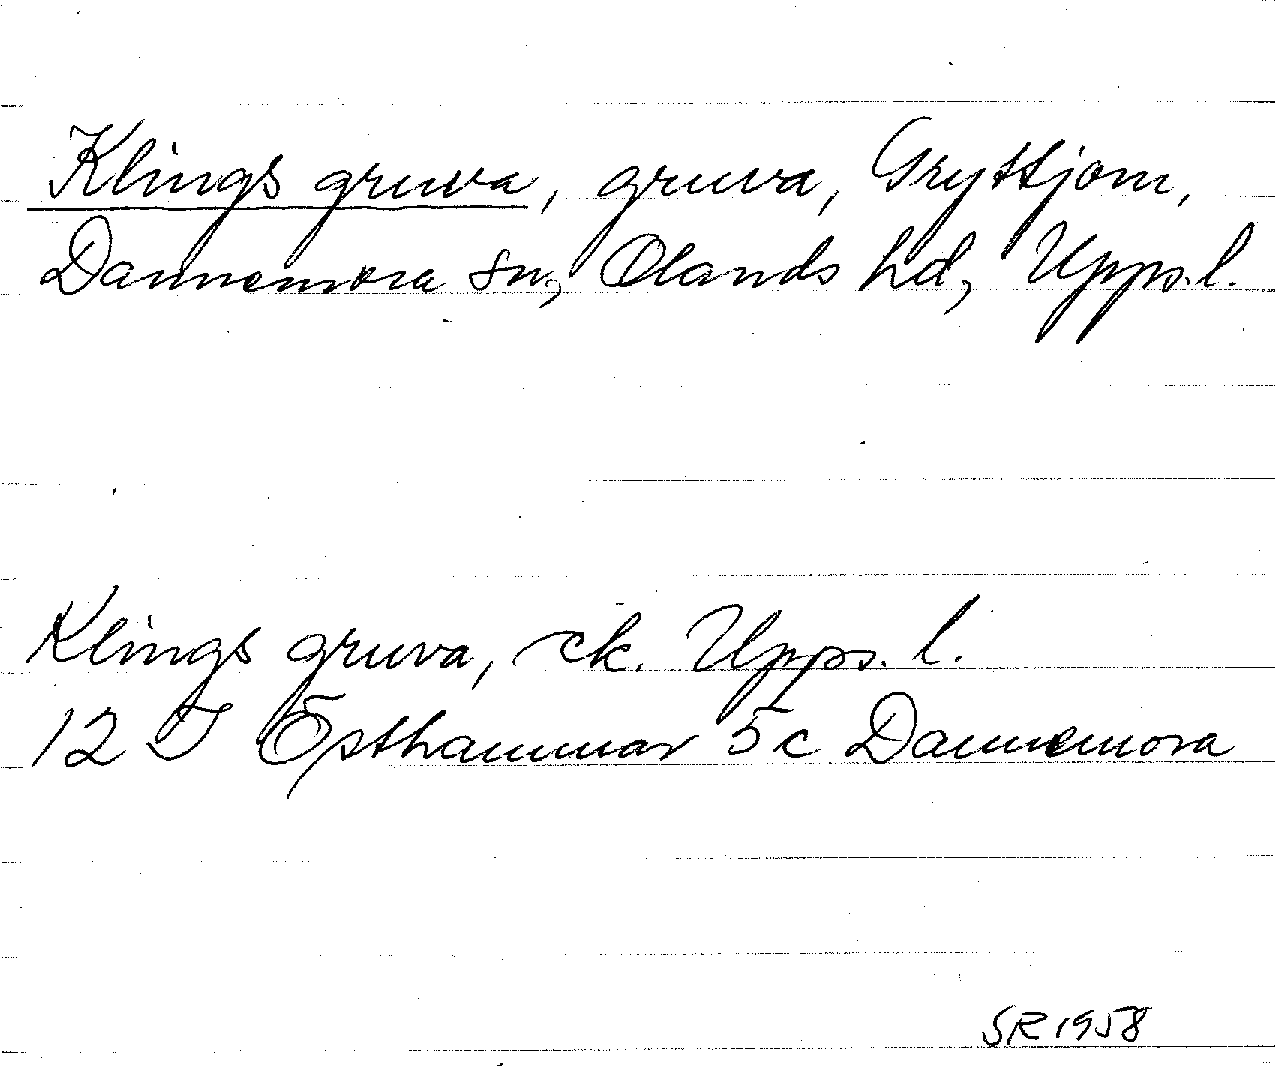 Klings gruva, gruva, Gryttjom,
Dannemora sn, Olands hd, Upps.l.
Klings gruva, ek. Upps. l.
12 I Östhammar 5c Dannemora
SR 1958